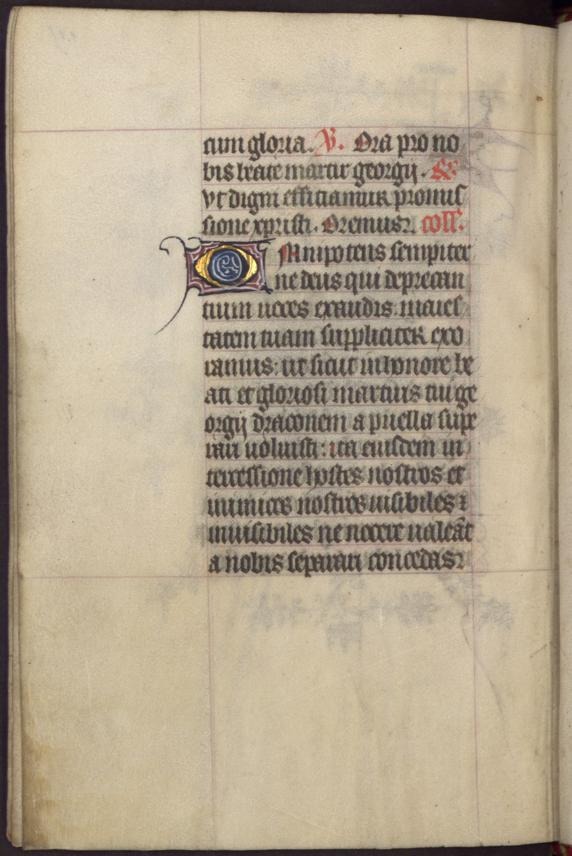 cum gloria. V. Ora pro no
bis beate martir georgij. R.
vt digni efficiamur promis
sione xpristi. Oremus. coll.
Omnipotens sempiter
ne deus qui deprecan
tium uoces exaudis. maies
tatem tuam suppliciter exo
ramus: ut sicut in honore be
ati et gloriosi martiris tui ge
orgij draconem a puella supe
rari uoluisti: ita eiusdem in
tercessione hostes nostros et
inimicos nostros uisibiles ⁊
inuisibiles ne nocere ualeāt
a nobis separari concedas